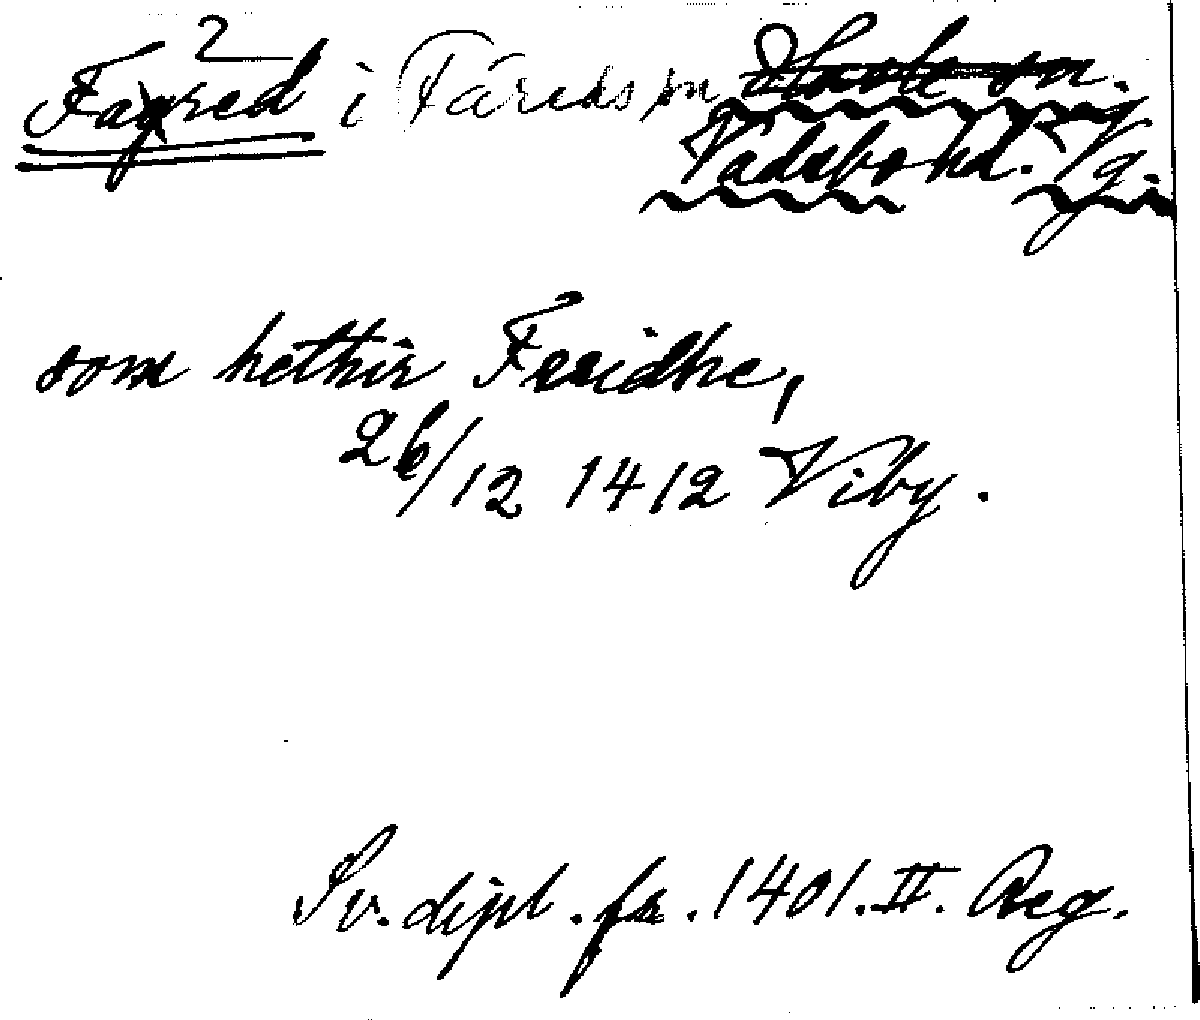 2
Fagred i Färeds sn
Vadsbo hd. Vg.
som hethir Freidhe,
26/12 1412 Viby.
Sv. dipl. fr. 1401. II. Reg.